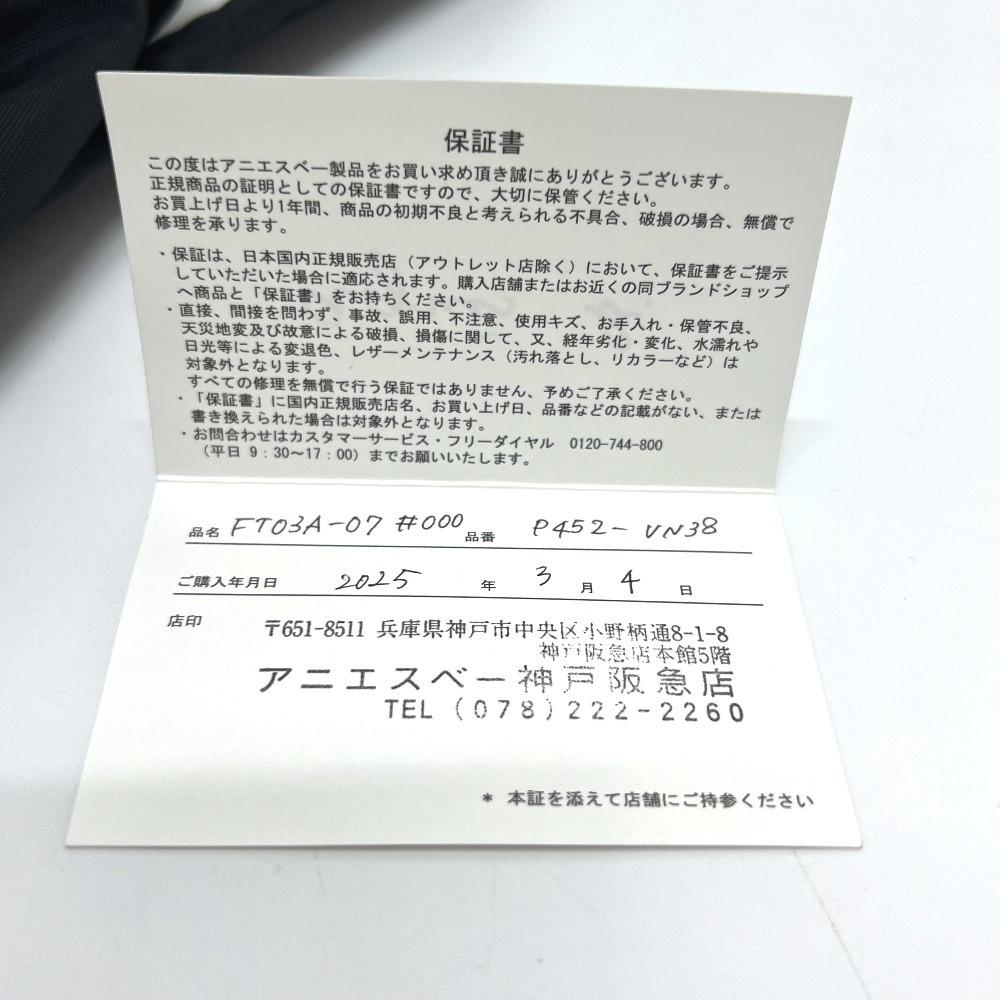 保証書
この度はアニエスベー製品をお買い求め頂き誠にありがとうございます。
正規商品の証明としての保証書ですので、大切に保管ください。
お買上げ日より1年間、商品の初期不良と考えられる不具合、破損の場合、無償で
修理を承ります。
・保証は、日本国内正規販売店（アウトレット店除く）において、保証書をご提示
していただいた場合に適応されます。購入店舗またはお近くの同ブランドショップ
へ商品と「保証書」をお持ちください。
・直接、間接を問わず、事故、誤用、不注意、使用キズ、お手入れ・保管不良、
天災地変及び故意による破損、損傷に関して、又、経年劣化・変化、水濡れや
日光等による変退色、レザーメンテナンス（汚れ落とし、リカラーなど）は
対象外となります。
すべての修理を無償で行う保証ではありません、予めご了承ください。
・「保証書」に国内正規販売店名、お買い上げ日、品番などの記載がない、または
書き換えられた場合は対象外となります。
・お問合わせはカスタマーサービス・フリーダイヤル 0120-744-800
（平日 9：30～17：00）までお願いいたします。
品名 FT03A-07 #000 品番 P452-VN38
ご購入年月日 2025 年 3 月 4 日
店印 〒651-8511 兵庫県神戸市中央区小野柄通8-1-8
神戸阪急店本館5階
アニエスベー神戸阪急店
TEL (078)222-2260
* 本証を添えて店舗にご持参ください